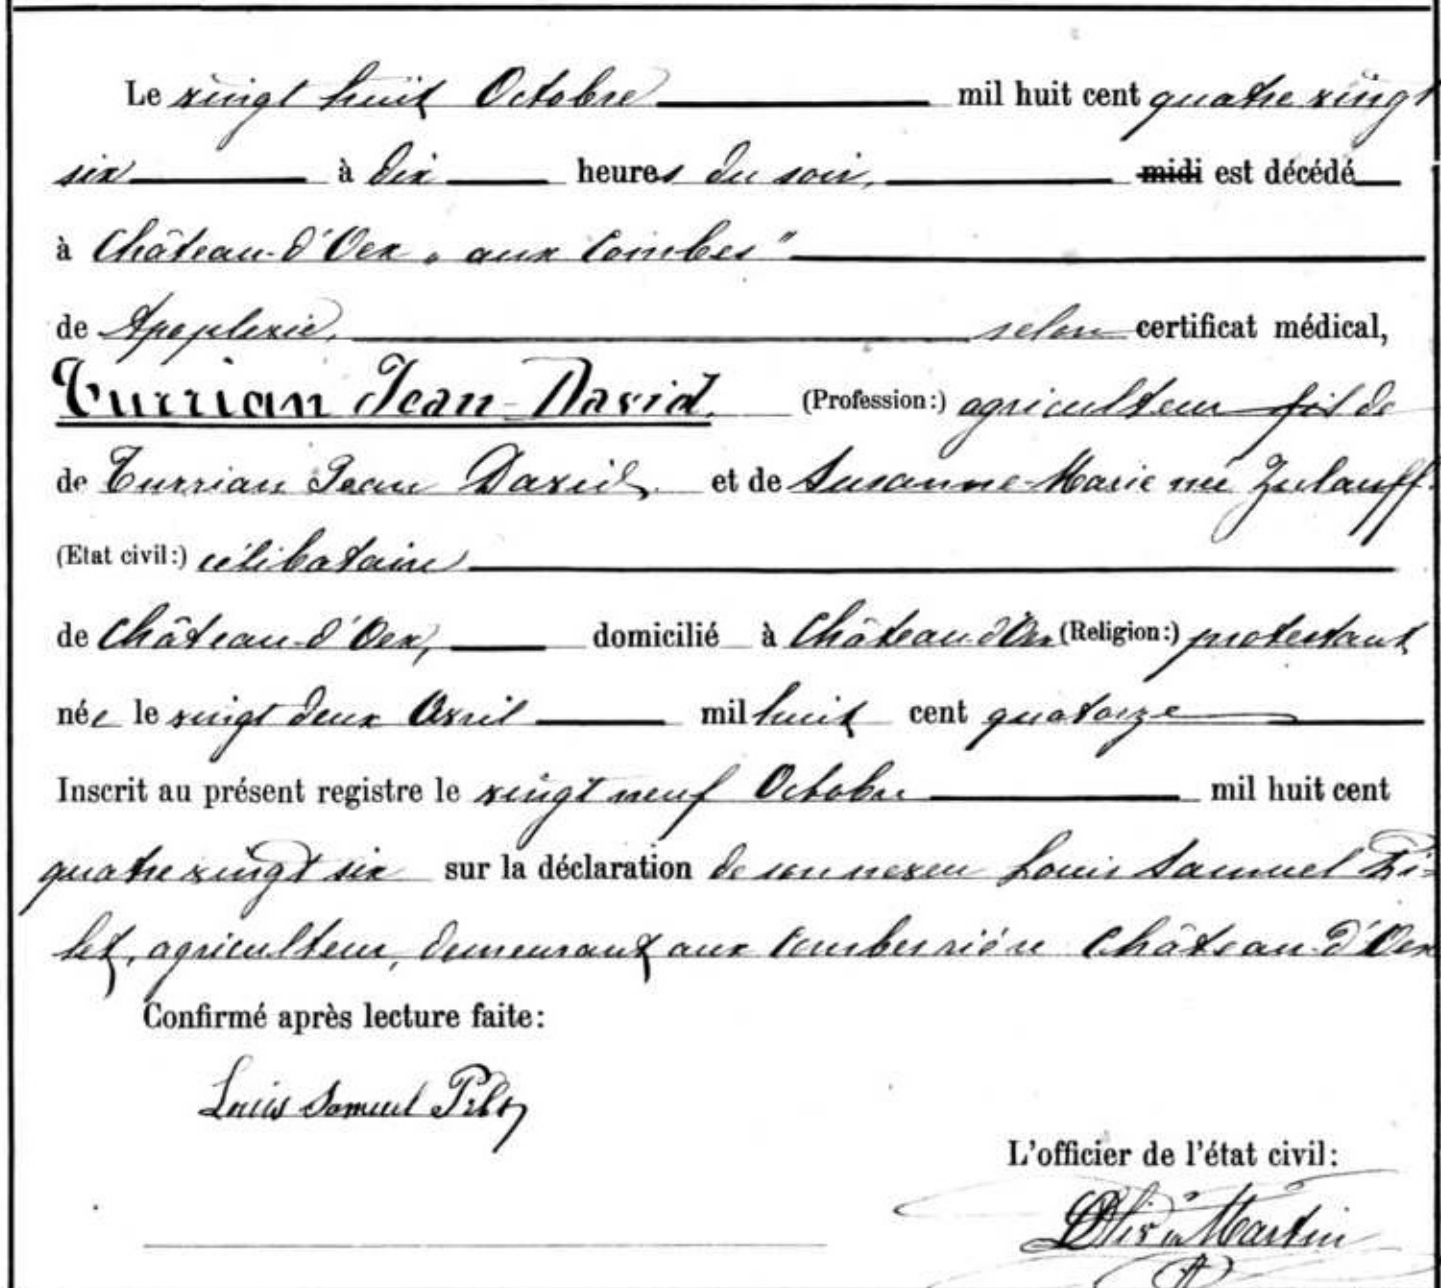 Le vingt huit Octobre mil huit cent quatre vingt
six à dix heures du soir, midi est décédé
à Château-d'Oex „aux Combes"
de Apoplexie, selon certificat médical,
Turrian Jean-David. (Profession:) agriculteur fils de
de Turrian Jean David, et de Susanne-Marie née Zulauff.
(Etat civil:) célibataire
de Château-d'Oex, domicilié à Château-d'Oex (Religion:) protestant
née le vingt deux Avril mil huit cent quatorze
Inscrit au présent registre le vingt neuf Octobre mil huit cent
quatre vingt six sur la déclaration de son neveu Louis Samuel Pi-
let, agriculteur, demeurant aux Combes rière Château-d'Oex
Confirmé après lecture faite:
Louis Samuel Pilet
L'officier de l'état civil:
Martin